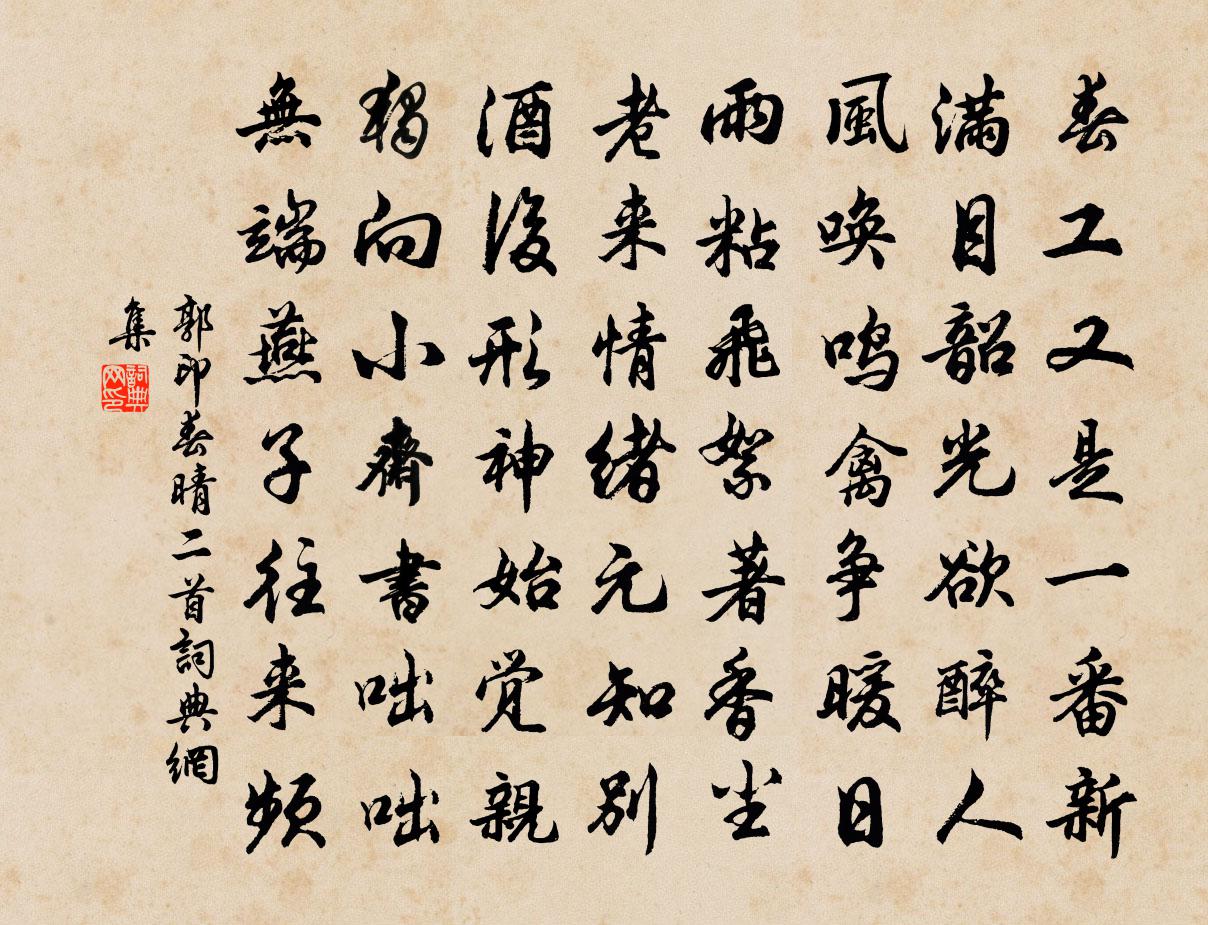 春工又是一番新
滿目韶光欲醉人
風喚鳴禽争暖日
雨粘飛絮著香尘
老来情緒元知別
酒後形神始覚親
獨向小齋書咄咄
無端燕子往来頻
郭印春晴二首詞典網
集
詞典
网印